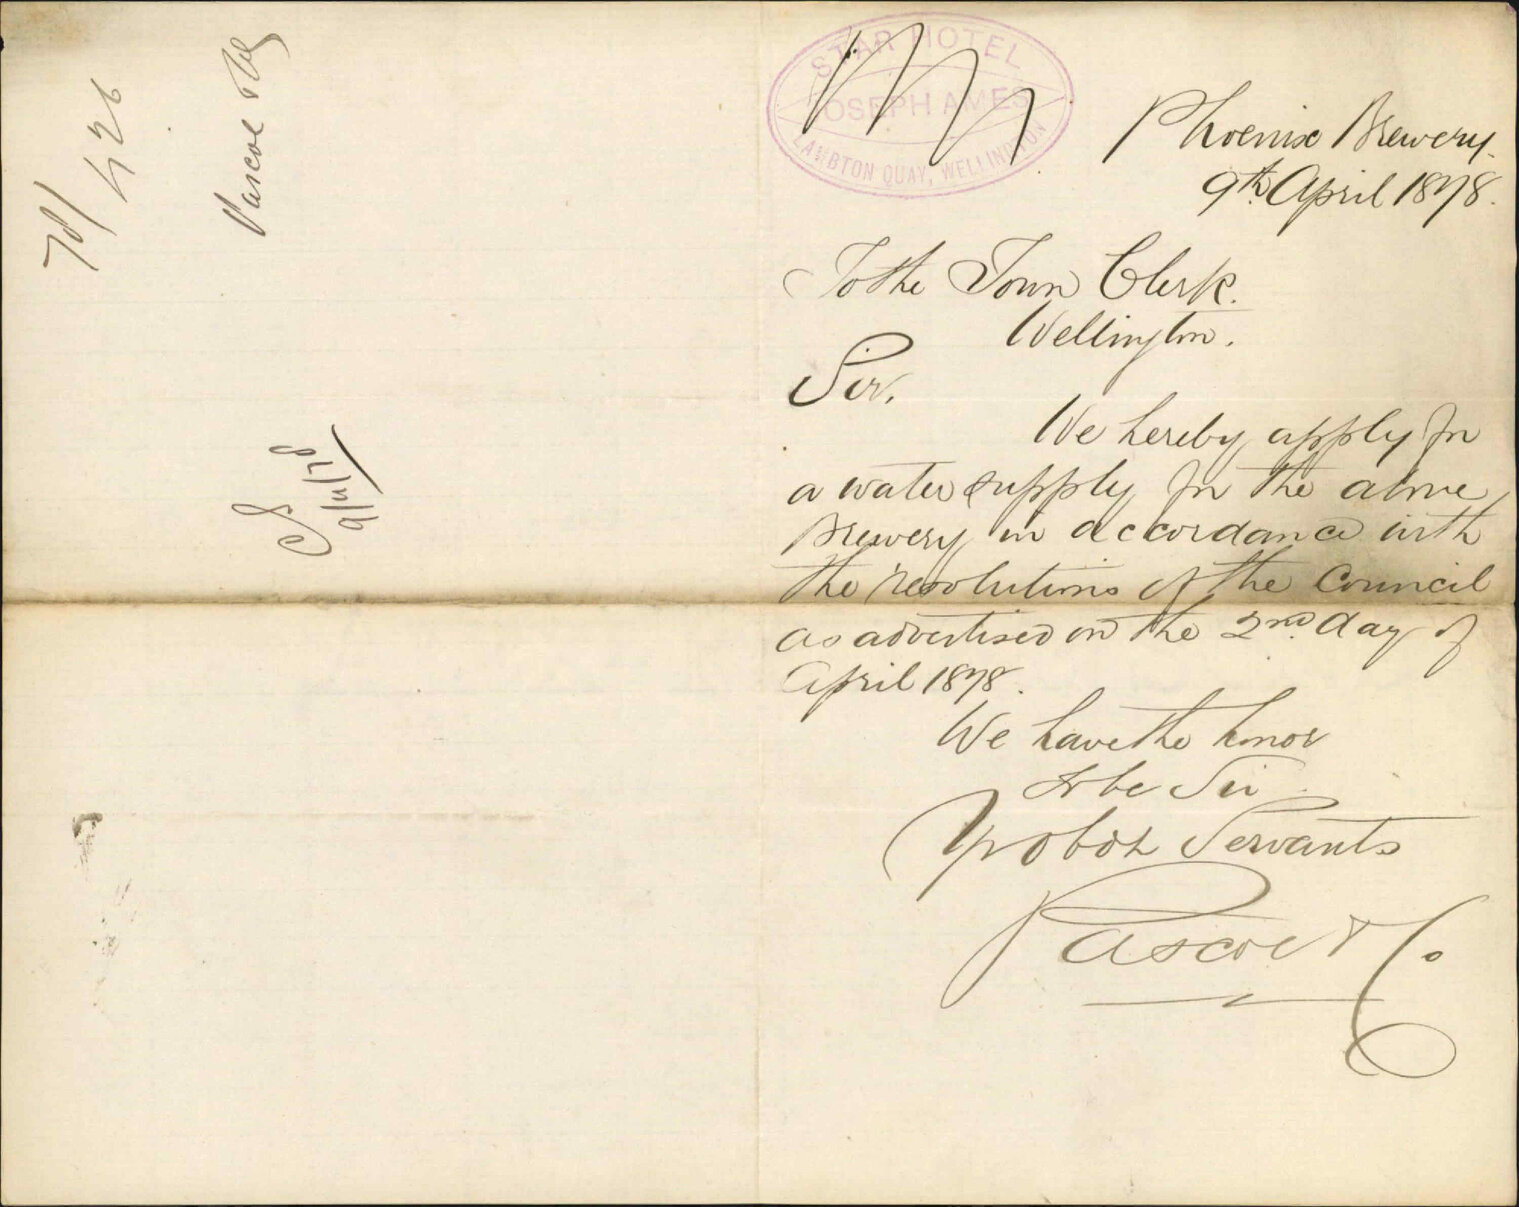 78/426
Pascoe & Co
9/4/78
STAR HOTEL
JOSEPH AMES
LAMBTON QUAY, WELLINGTON
Phoenix Brewery.
9th April 1878.
To the Town Clerk.
Wellington.
Sir,
We hereby apply for
a water supply for the above
Brewery in accordance with
the resolutions of the Council
as advertised on the 2nd day of
April 1878.
We have the honor
to be Sir
Yr obdt Servants
Pascoe & Co